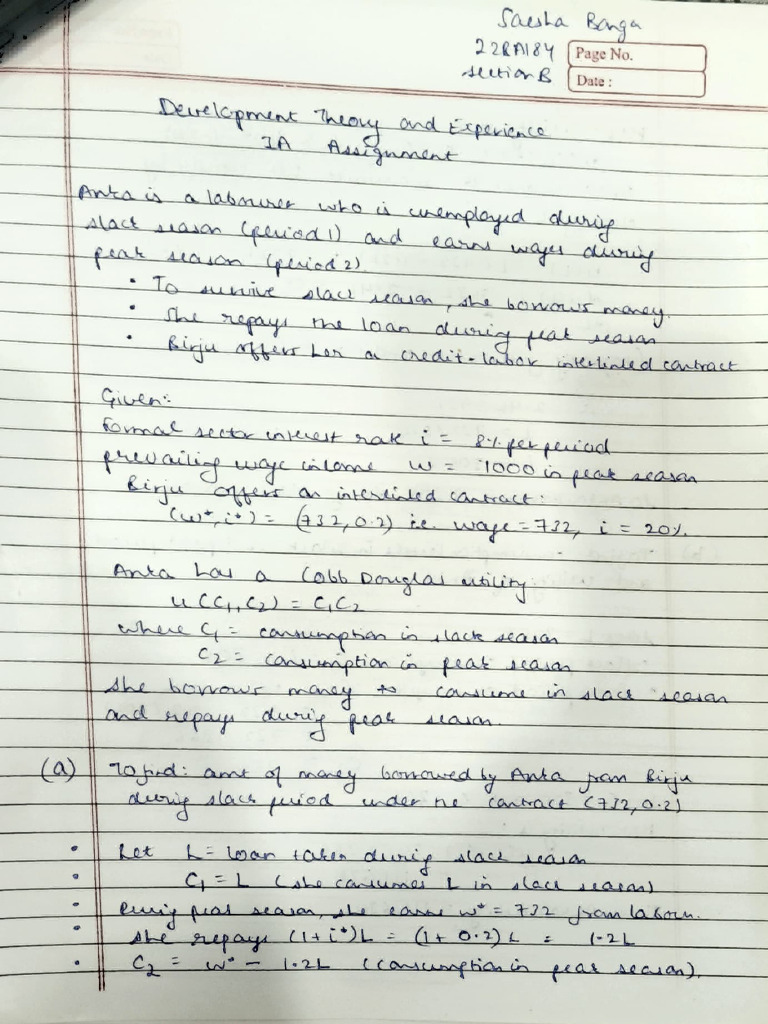 Saesha Banga
22RA184
Page No.
section B
Date :
Development Theory and Experience
IA Assignment
Anka is a labourer who is unemployed during
slack season (period 1) and earns wages during
peak season (period 2)
• To survive slack season, she borrows money.
• She repays the loan during peak season
• Birju offers her a credit-labor interlinked contract
Given:-
Formal sector interest rate i = 8% per period
prevailing wage income w = 1000 in peak season
Birju offers an interlinked contract:
(w*, i*) = (732, 0.2) i.e. wage = 732, i = 20%.
Anka has a Cobb Douglas utility:
u (C1, C2) = C1C2
where C1 = consumption in slack season
C2 = consumption in peak season
she borrows money to consume in slack season
and repays during peak season.
(a) To find: amt of money borrowed by Anka from Birju
during slack period under the contract (732, 0.2)
• Let L = loan taken during slack season
• C1 = L (she consumes L in slack season)
• During peak season, she earns w* = 732 from labour.
• She repays (1+i*)L = (1+0.2)L = 1.2L
• C2 = w* - 1.2L (consumption in peak season).